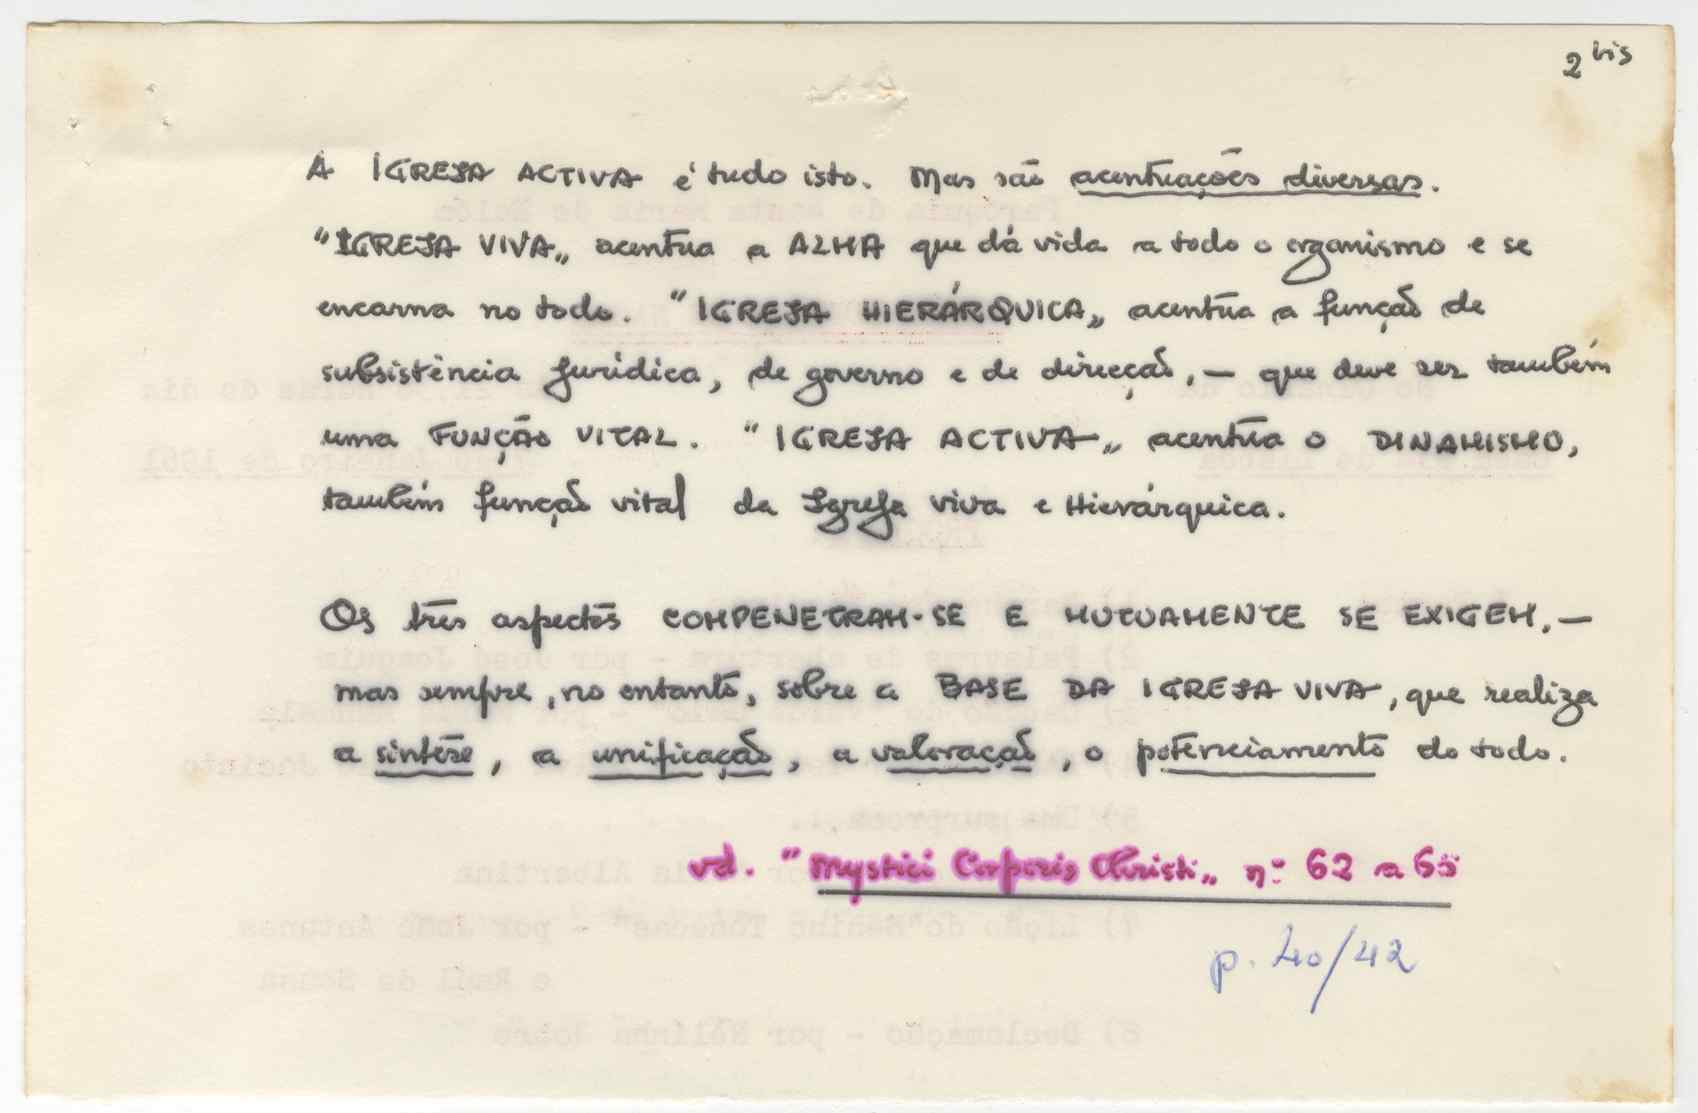 2 bis
A IGREJA ACTIVA é tudo isto. Mas são acentuações diversas.
"IGREJA VIVA„ acentua a ALMA que dá vida a todo o organismo e se
encarna no todo. "IGREJA HIERÁRQUICA„ acentua a função de
subsistência jurídica, de governo e de direcção, — que deve ser também
uma FUNÇÃO VITAL. "IGREJA ACTIVA„ acentua o DINAMISMO,
também função vital da Igreja viva e Hierárquica.
Os três aspectos COMPENETRAM-SE E MUTUAMENTE SE EXIGEM, —
mas sempre, no entanto, sobre a BASE DA IGREJA VIVA, que realiza
a síntese, a unificação, a valoração, o potenciamento do todo.
vd. "Mystici Corporis Christi„ nº 62 a 65
p. 40/42